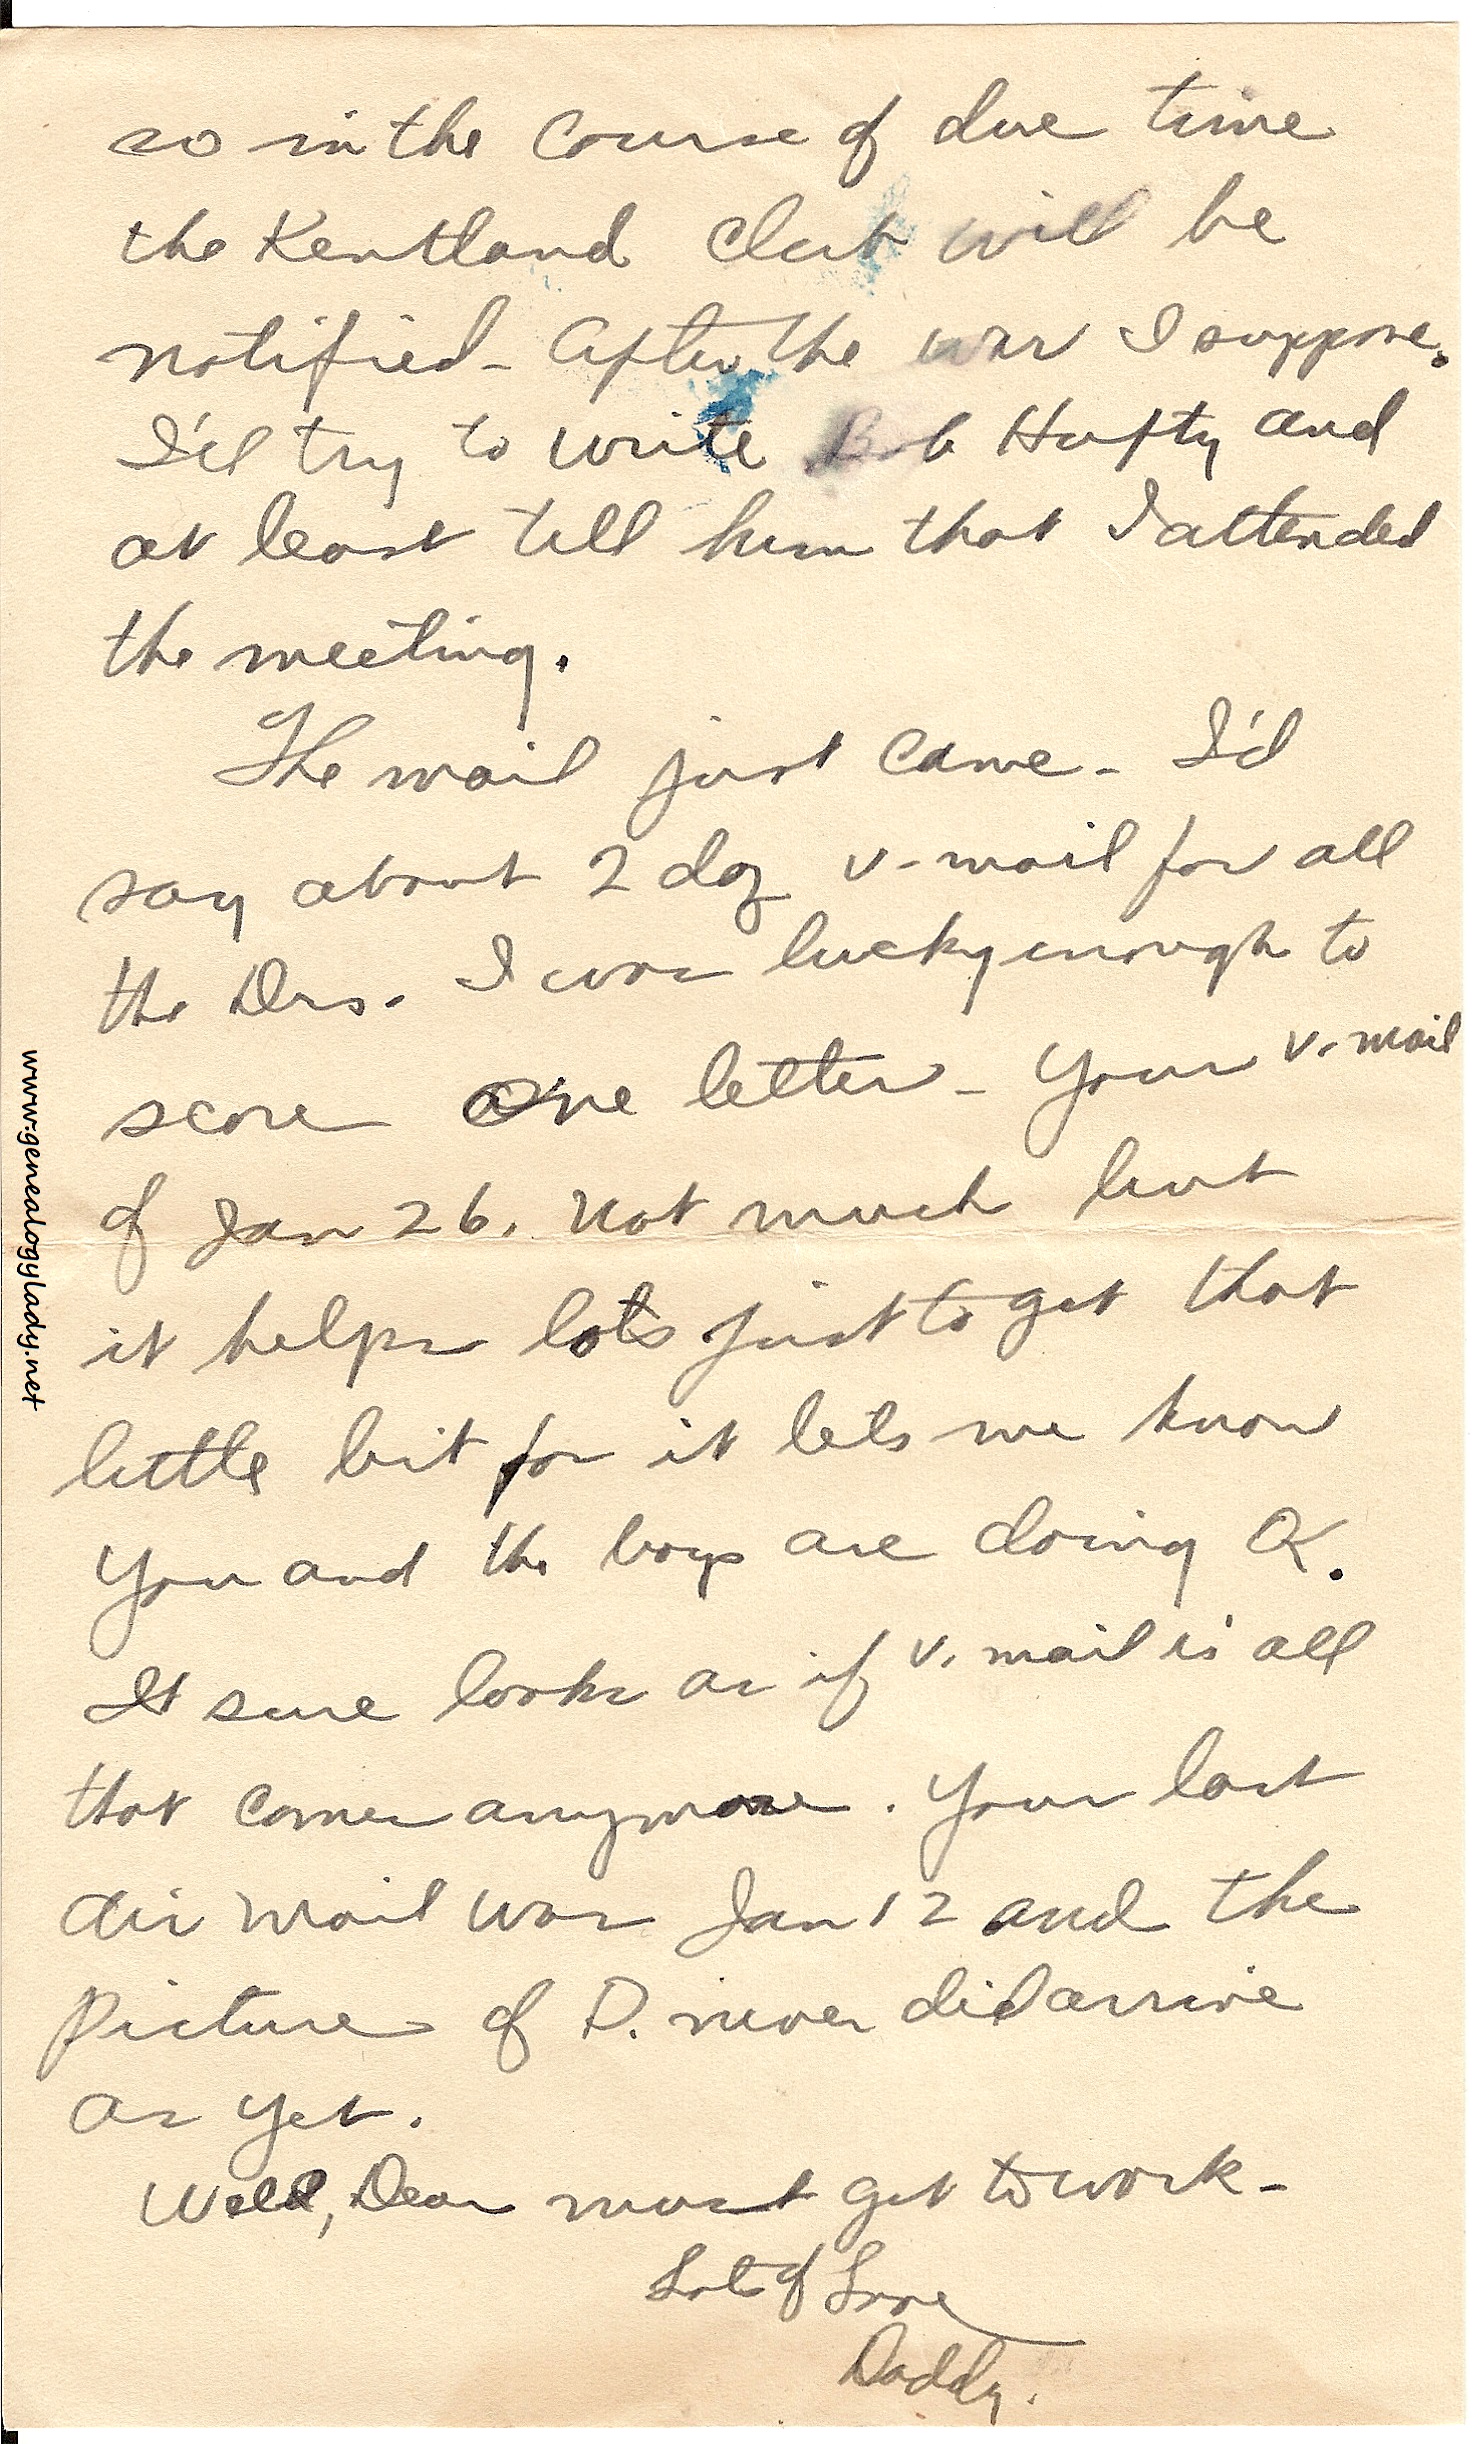 so in the course of due time
the Kentland club will be
notified - after the war I suppose.
I'll try to write Bob Hufty and
at least tell him that I attended
the meeting.
The mail just came - I'd
say about 2 doz v-mail for all
the Drs. I was lucky enough to
score one letter - Your v. mail
of Jan 26. Not much but
it helps lots just to get that
little bit for it lets me know
you and the boys are doing OK.
It sure looks as if v. mail is all
that comes anymore. Your last
air mail was Jan 12 and the
picture of D. never did arrive
as yet.
Well, Dear must get to work -
Lots of Love
Daddy.
www.genealogylady.net